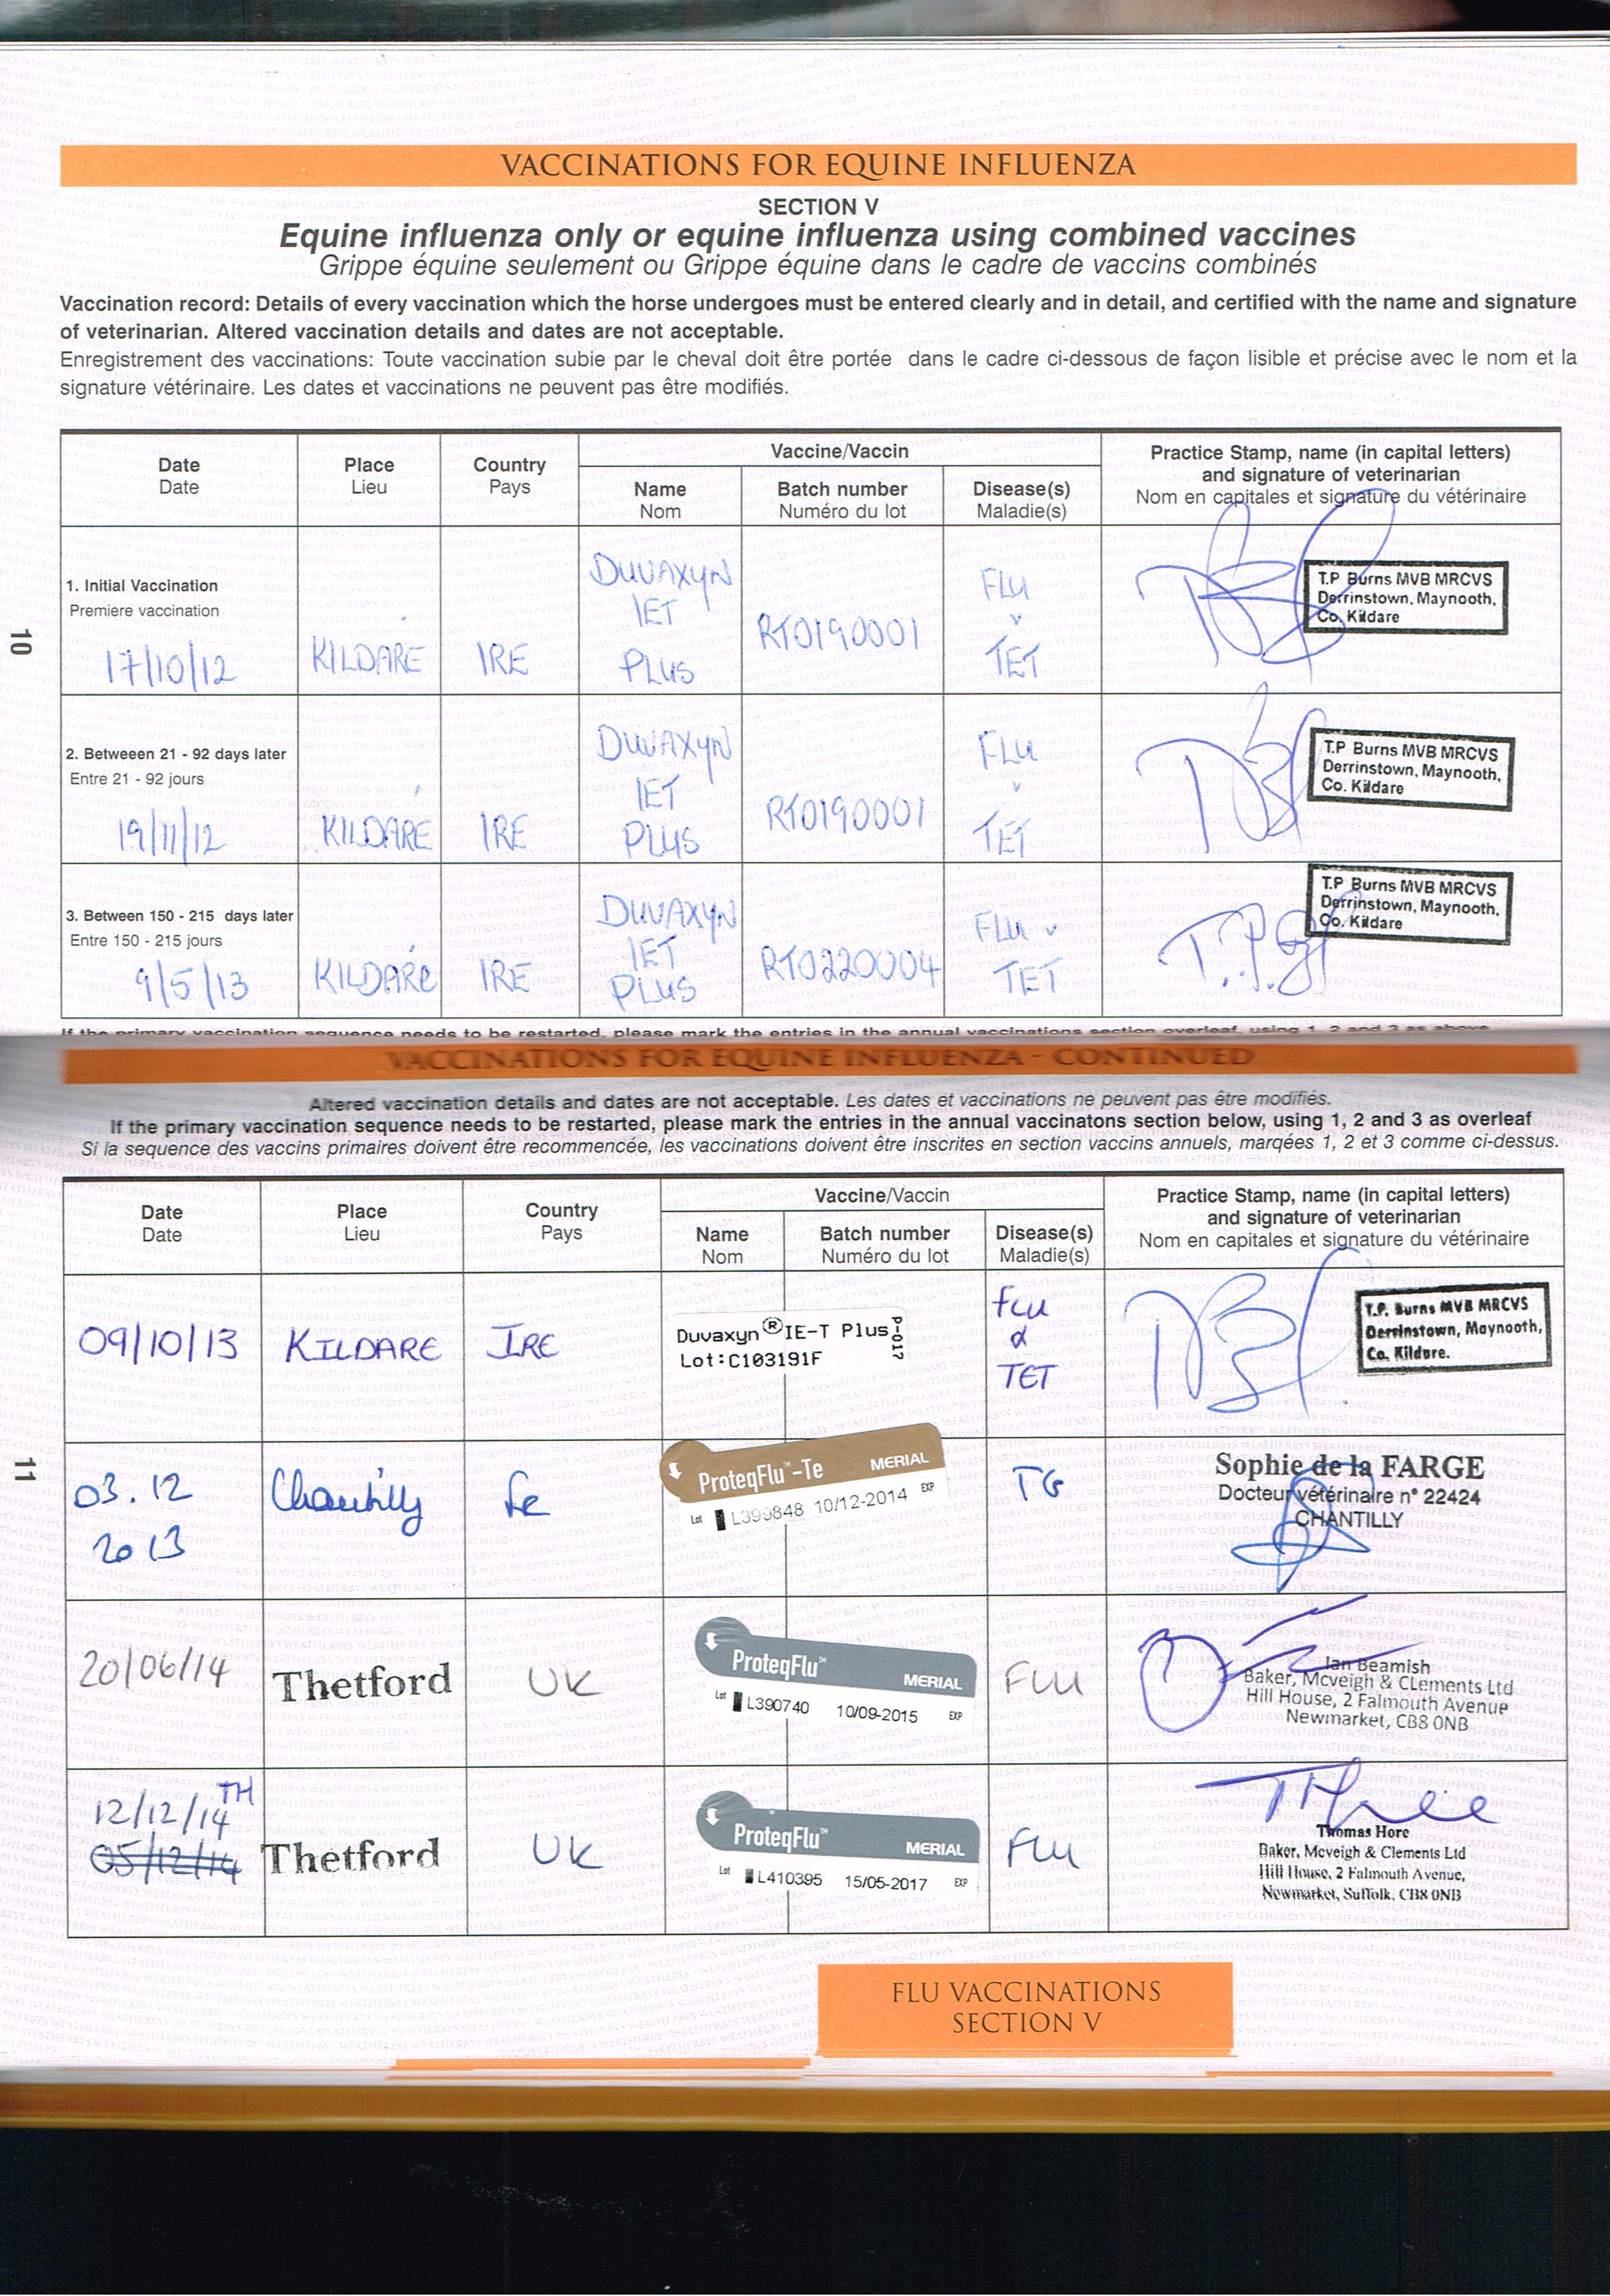 VACCINATIONS FOR EQUINE INFLUENZA
SECTION V
Equine influenza only or equine influenza using combined vaccines
Grippe équine seulement ou Grippe équine dans le cadre de vaccins combinés
Vaccination record: Details of every vaccination which the horse undergoes must be entered clearly and in detail, and certified with the name and signature
of veterinarian. Altered vaccination details and dates are not acceptable.
Enregistrement des vaccinations: Toute vaccination subie par le cheval doit être portée dans le cadre ci-dessous de façon lisible et précise avec le nom et la
signature vétérinaire. Les dates et vaccinations ne peuvent pas être modifiés.
Date
Date
Place
Lieu
Country
Pays
Vaccine/Vaccin
Name
Nom
Batch number
Numéro du lot
Disease(s)
Maladie(s)
Practice Stamp, name (in capital letters)
and signature of veterinarian
Nom en capitales et signature du vétérinaire
1. Initial Vaccination
Premiere vaccination
17/10/12
KILDARE
IRE
DUVAXYN
IET
PLUS
RT0190001
FLU
TET
T.P Burns MVB MRCVS
Derrinstown, Maynooth,
Co. Kildare
2. Betweeen 21 - 92 days later
Entre 21 - 92 jours
19/11/12
KILDARE
IRE
DUVAXYN
IET
PLUS
RT0190001
FLU
TET
T.P Burns MVB MRCVS
Derrinstown, Maynooth,
Co. Kildare
3. Between 150 - 215 days later
Entre 150 - 215 jours
9/5/13
KILDARE
IRE
DUVAXYN
IET
PLUS
RT0220004
FLU
TET
T.P Burns MVB MRCVS
Derrinstown, Maynooth,
Co. Kildare
10
If the primary vaccination sequence needs to be restarted, please mark the entries in the annual vaccinations section overleaf, using 1, 2 and 3 as above
VACCINATIONS FOR EQUINE INFLUENZA - CONTINUED
Altered vaccination details and dates are not acceptable. Les dates et vaccinations ne peuvent pas être modifiés.
If the primary vaccination sequence needs to be restarted, please mark the entries in the annual vaccinatons section below, using 1, 2 and 3 as overleaf
Si la sequence des vaccins primaires doivent être recommencée, les vaccinations doivent être inscrites en section vaccins annuels, marqées 1, 2 et 3 comme ci-dessus.
Date
Date
Place
Lieu
Country
Pays
Vaccine/Vaccin
Name
Nom
Batch number
Numéro du lot
Disease(s)
Maladie(s)
Practice Stamp, name (in capital letters)
and signature of veterinarian
Nom en capitales et signature du vétérinaire
09/10/13
KILDARE
IRE
Duvaxyn®IE-T Plus
Lot:C103191F
P-017
FLU
&
TET
T.P. Burns MVB MRCVS
Derrinstown, Maynooth,
Co. Kildare.
03.12
2013
Chantilly
Fe
ProteqFlu™-Te MERIAL
Lot L399848 10/12-2014 EXP
TG
Sophie de la FARGE
Docteur vétérinaire n° 22424
CHANTILLY
20/06/14
Thetford
UK
ProteqFlu™ MERIAL
Lot L390740 10/09-2015 EXP
FLU
Ian Beamish
Baker, Mcveigh & CLements Ltd
Hill House, 2 Falmouth Avenue
Newmarket, CB8 0NB
12/12/14 TH
05/12/14
Thetford
UK
ProteqFlu™ MERIAL
Lot L410395 15/05-2017 EXP
FLU
Thomas Hore
Baker, Mcveigh & Clements Ltd
Hill House, 2 Falmouth Avenue,
Newmarket, Suffolk, CB8 0NB
11
FLU VACCINATIONS
SECTION V